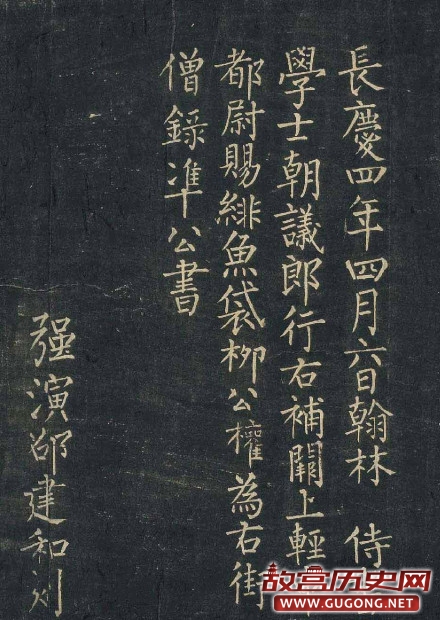 長慶四年四月六日翰林 侍
學士朝議郎行右補闕上輕
都尉賜緋魚袋柳公權為右街
僧錄準公書
强演邵建和刻
故宫历史网
WWW.GUGONG.NET